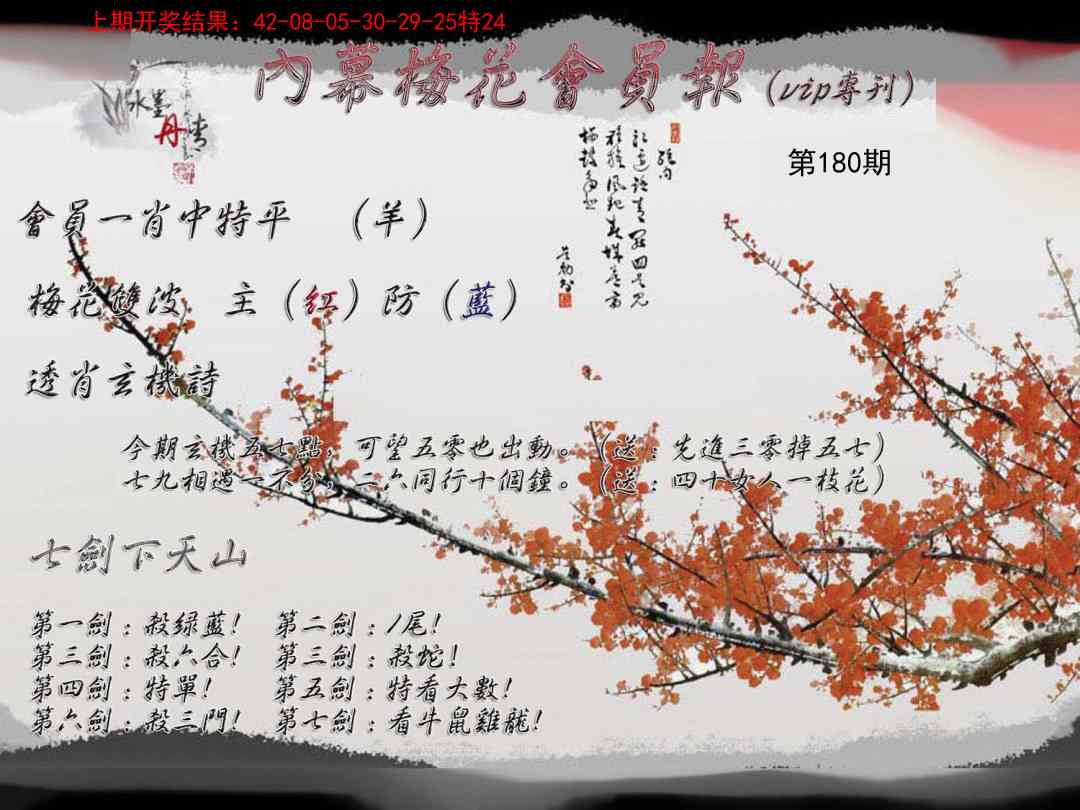 上期开奖结果：42-08-05-30-29-25特24
內幕梅花會員報（vip專刊）
水墨
丹青
第180期
會員一肖中特平　（羊）
梅花雙波　主（紅）防（藍）
透肖玄機詩
今期玄機五七點，可望五零也出動。（送：先進三零掉五七）
七九相遇一不分，二六同行十個鐘。（送：四十女人一枝花）
七劍下天山
第一劍：殺綠藍！　第二劍：1尾！
第三劍：殺六合！　第三劍：殺蛇！
第四劍：特單！　第五劍：特看大數！
第六劍：殺三門！　第七劍：看牛鼠雞龍！